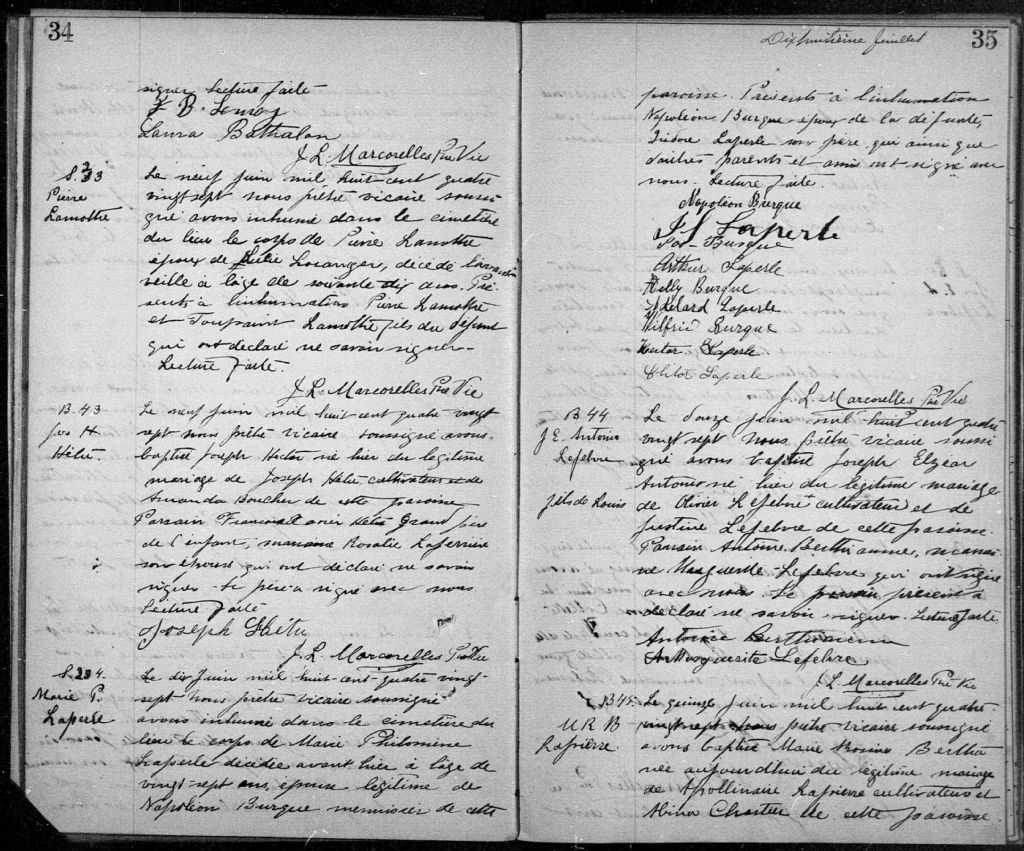 34
signer Lecture faite
J. B.
Laura Bathalon
J. L. Marcorelles Ptre Vic
S. 33
Pierre
Lamothe
Le neuf Juin mil huit cent quatre
vingt sept nous prêtre vicaire soussi
gné avons inhumé dans le cimetière
du lieu le corps de Pierre Lamothe
époux de Julie Loranger, décédé l'avant
veille à l'âge de soixante dix ans. Pré
sents à l'inhumation Pierre Lamothe
et Toussaint Lamothe fils du défunt
qui ont déclaré ne savoir signer.
Lecture faite.
J. L. Marcorelles Ptre Vic
B. 43
Jos H.
Hétu
Le neuf Juin mil huit cent quatre vingt
sept nous prêtre vicaire soussigné avons
baptisé Joseph Hector né hier du légitime
mariage de Joseph Hétu cultivateur et de
Amanda Boucher de cette paroisse
Parrain Francois Xavier Hétu Grand père
de l'enfant, marraine Rosalie Laferrière
son épouse qui ont déclaré ne savoir
signer. Le père a signé avec nous
Lecture faite
Joseph Hétu
J. L. Marcorelles Ptre Vic
S. 34.
Marie P.
Laperle
Le dix Juin mil huit cent quatre vingt
sept nous prêtre vicaire soussigné
avons inhumé dans le cimetière du
lieu le corps de Marie Philomine
Laperle décédée avant hier à l'âge de
vingt sept ans, épouse légitime de
Napoléon Burque menuisier de cette
Dixhuitième feuillet
35
paroisse. Présents à l'inhumation
Napoléon Burque époux de la défunte,
Isidore Laperle son père qui ainsi que
d'autres parents et amis ont signé avec
nous. Lecture faite.
Napoléon Burque
Laperle
Jos Burque
Arthur Laperle
Burque
Laperle
Wilfrid Burque
Hector Laperle
Laperle
J. L. Marcorelles Ptre Vic
B 44
J E. Antonio
Lefebvre
fils de Louis
Le douze Juin mil huit cent quatre
vingt sept nous prêtre vicaire soussi
gné avons baptisé Joseph Elzéar
Antonio né hier du légitime mariage
de Olivier Lefebvre cultivateur et de
Justine Lefebvre de cette paroisse.
Parrain Antoine Berthiaume, marrai
ne Marguerite Lefebvre qui ont signé
avec nous. Le présent a
déclaré ne savoir signer. Lecture faite.
Antoine Berthiaume
Marguerite Lefebvre
J. L. Marcorelles Ptre Vic
B 45.
M R B
Laprierre
Le quinze Juin mil huit cent quatre
vingt sept nous prêtre vicaire soussigné
avons baptisé Marie Rosina Bertha
née aujourdhui du légitime mariage
de Apollinaire Laprierre cultivateur et
de cette paroisse.